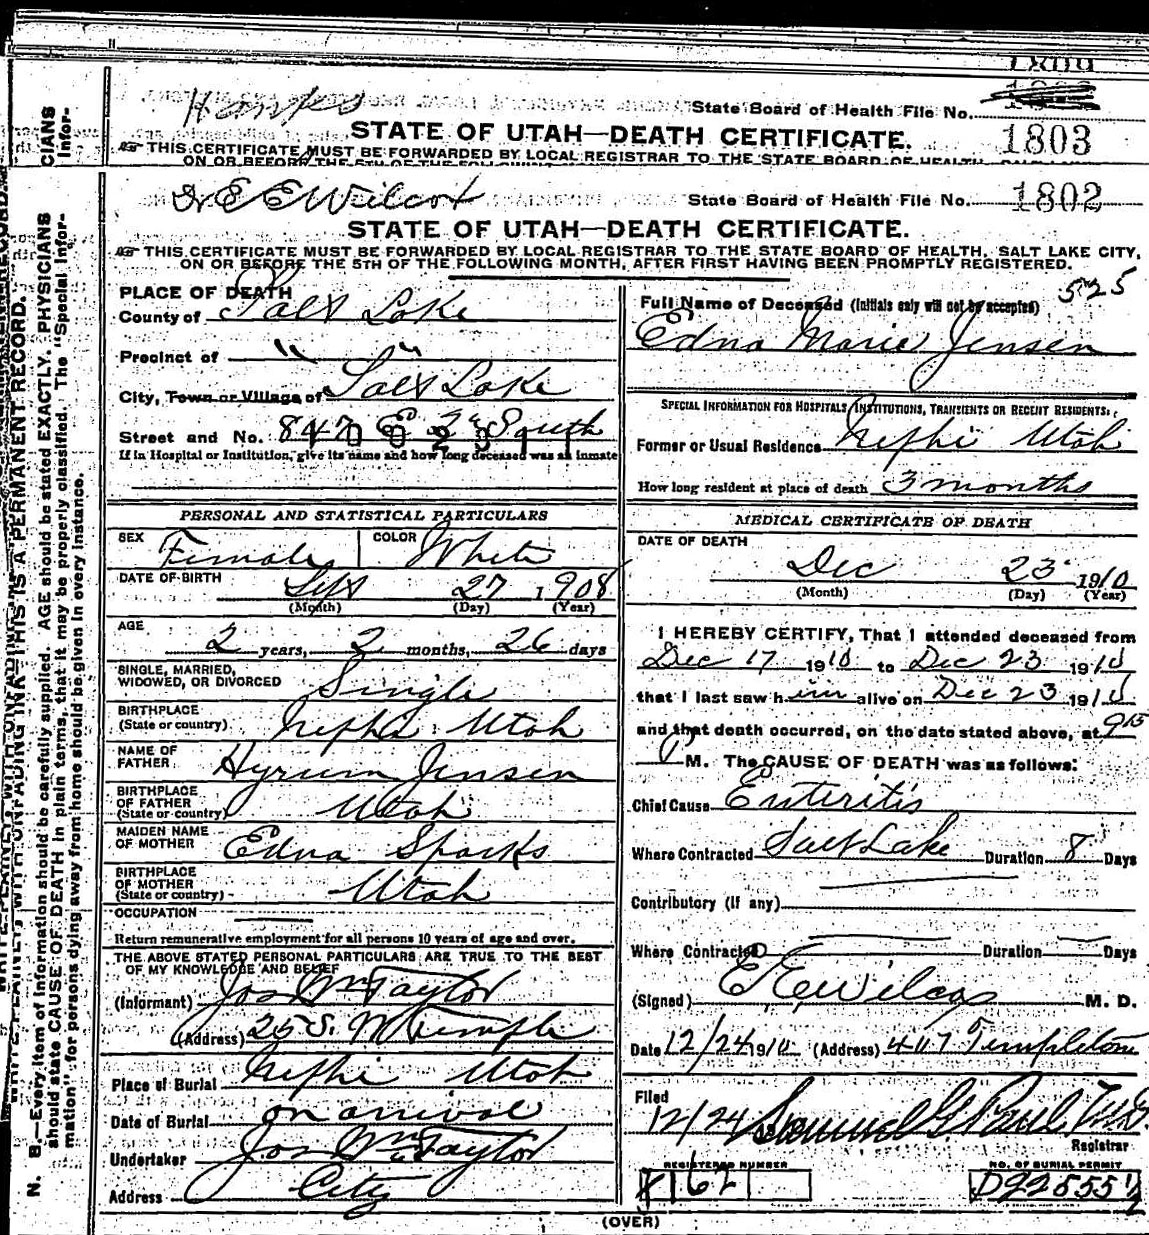 Hanks
State Board of Health File No.
1803
STATE OF UTAH—DEATH CERTIFICATE.
THIS CERTIFICATE MUST BE FORWARDED BY LOCAL REGISTRAR TO THE STATE BOARD OF HEALTH,
ON OR BEFORE THE 5TH OF THE FOLLOWING MONTH
Dr E E Wilcox
State Board of Health File No. 1802
STATE OF UTAH—DEATH CERTIFICATE.
THIS CERTIFICATE MUST BE FORWARDED BY LOCAL REGISTRAR TO THE STATE BOARD OF HEALTH, SALT LAKE CITY,
ON OR BEFORE THE 5TH OF THE FOLLOWING MONTH, AFTER FIRST HAVING BEEN PROMPTLY REGISTERED.
525
PLACE OF DEATH
County of Salt Lake
Precinct of " "
City, Town or Village of Salt Lake
Street and No. 847 E 2d South
If in Hospital or Institution, give its name and how long deceased was an inmate
PERSONAL AND STATISTICAL PARTICULARS
SEX Female COLOR White
DATE OF BIRTH Sept 27 1908
(Month) (Day) (Year)
AGE 2 years, 2 months, 26 days
SINGLE, MARRIED,
WIDOWED, OR DIVORCED Single
BIRTHPLACE
(State or country) Nephi Utah
NAME OF
FATHER Hyrum Jensen
BIRTHPLACE
OF FATHER
(State or country) Utah
MAIDEN NAME
OF MOTHER Edna Sparks
BIRTHPLACE
OF MOTHER
(State or country) Utah
OCCUPATION
Return remunerative employment for all persons 10 years of age and over.
THE ABOVE STATED PERSONAL PARTICULARS ARE TRUE TO THE BEST
OF MY KNOWLEDGE AND BELIEF
(Informant) Jos Wm Taylor
(Address) 25 S. W Temple
Place of Burial Nephi Utah
Date of Burial on arrival
Undertaker Jos Wm Taylor
Address City
Full Name of Deceased (Initials only will not be accepted)
Edna Marie Jensen
SPECIAL INFORMATION FOR HOSPITALS, INSTITUTIONS, TRANSIENTS OR RECENT RESIDENTS.
Former or Usual Residence Nephi Utah
How long resident at place of death 3 months
MEDICAL CERTIFICATE OF DEATH
DATE OF DEATH
Dec 23 1910
(Month) (Day) (Year)
I HEREBY CERTIFY, That I attended deceased from
Dec 17 1910 to Dec 23 1910
that I last saw h im alive on Dec 23 1910
and that death occurred, on the date stated above, at 9 15
M. The CAUSE OF DEATH was as follows:
Chief Cause Enteritis
Where Contracted Salt Lake Duration 8 Days
Contributory (If any)
Where Contracted Duration Days
(Signed) E E Wilcox M. D.
Date 12/24 1910 (Address) 407 Templeton
Filed
12/24 Samuel G. Paul M.D.
Registrar
REGISTERED NUMBER
NO. OF BURIAL PERMIT
D92555½
(OVER)
N. B.—Every item of information should be carefully supplied. AGE should be stated EXACTLY. PHYSICIANS
should state CAUSE OF DEATH in plain terms, that it may be properly classified. The "Special Infor-
mation" for persons dying away from home should be given in every instance.
CIANS
Infor-